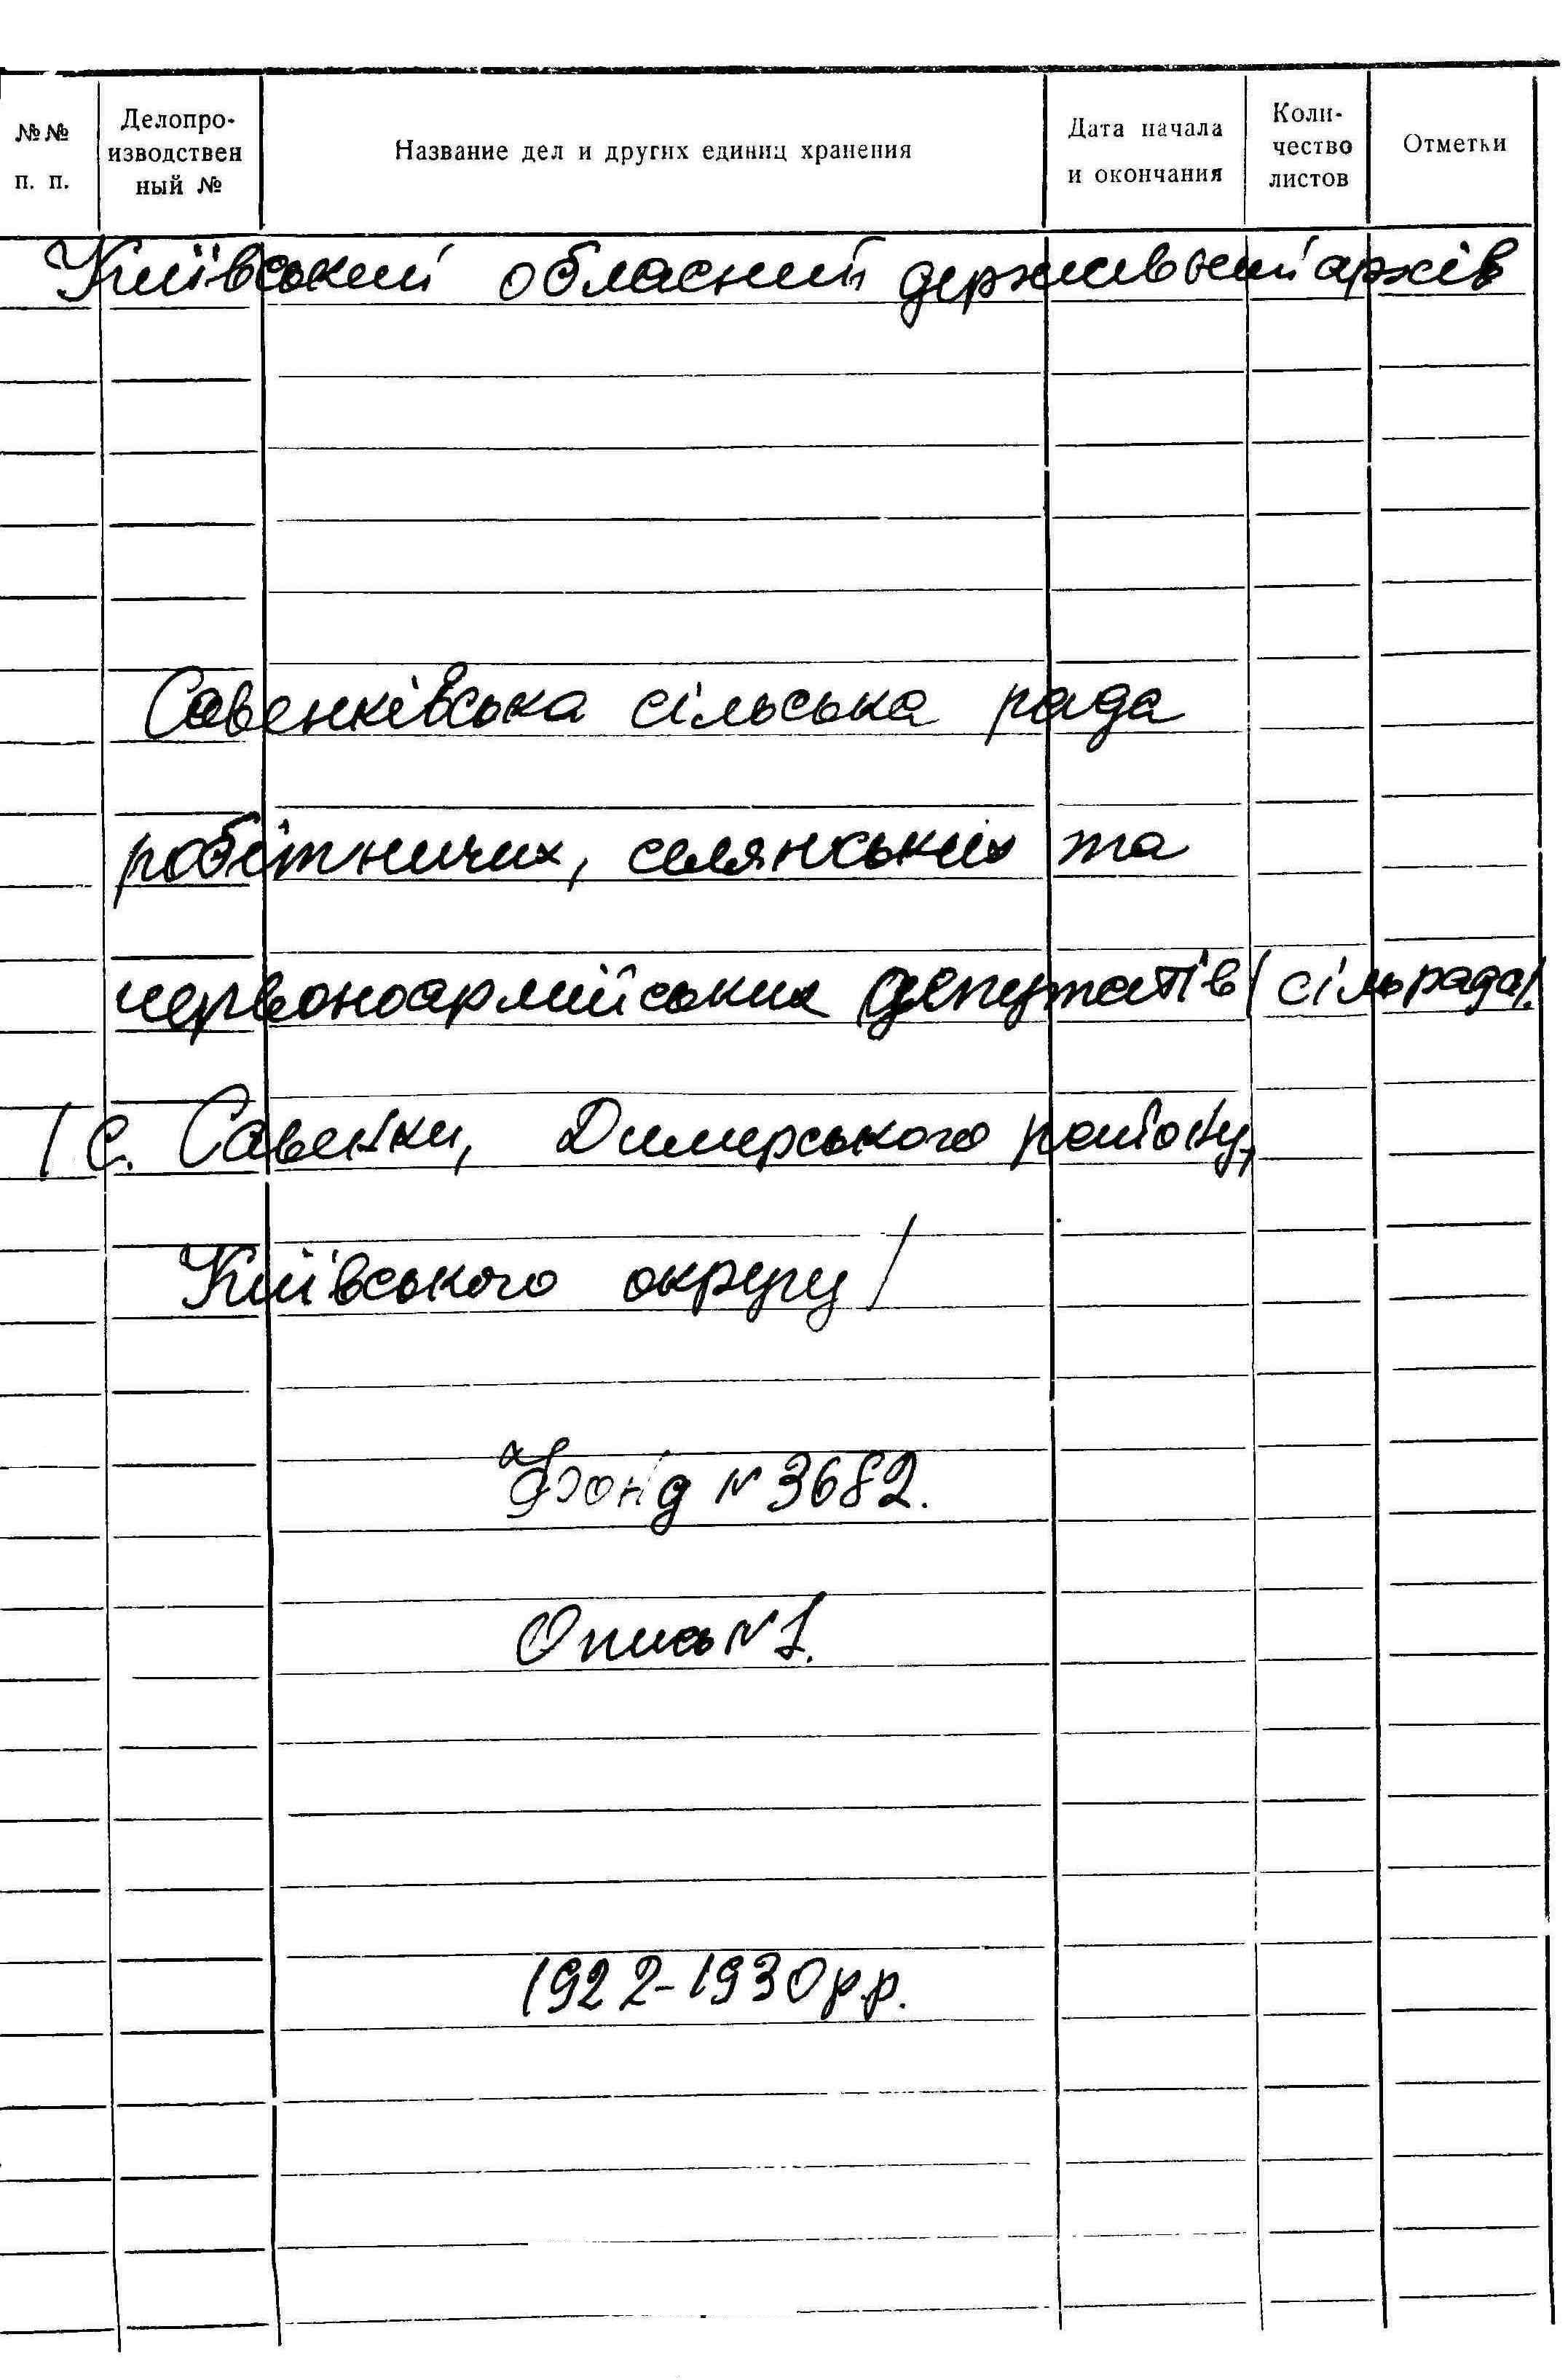 №№ п. п.
Делопро-
изводствен
ный №
Название дел и других единиц хранения
Дата начала
и окончания
Коли-
чество
листов
Отметки
Київський обласний державний архів
Савенківська сільська рада
робітничих, селянських та
червоноармійських депутатів /сільрада/.
/с. Савенки, Димерського району,
Київського округу/
Фонд № 3682.
Опись № 1.
1922-1930 р.р.